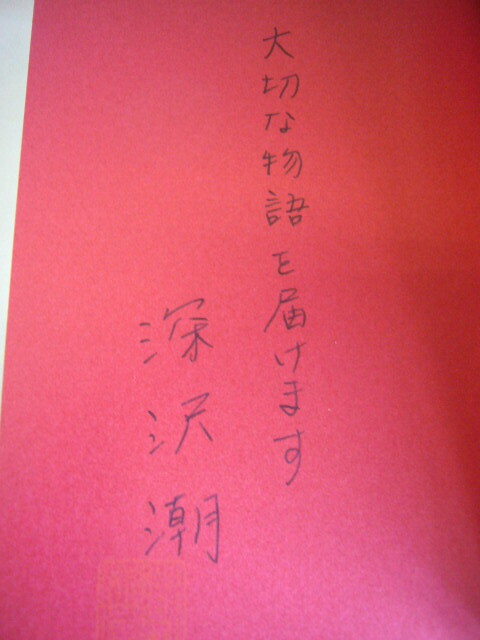 大切な物語を届けます
深沢潮